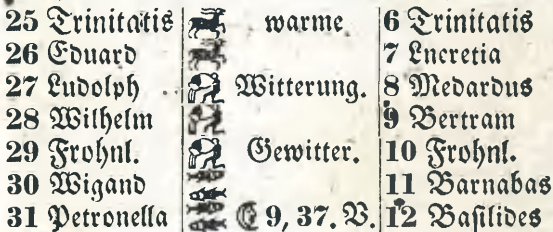 25 Trinitatis warme 6 Trinitatis
26 Eduard 7 Lucretia
27 Ludolph Witterung. 8 Medardus
28 Wilhelm 9 Bertram
29 Frohnl. Gewitter. 10 Frohnl.
30 Wigand 11 Barnabas
31 Petronella ☾ 9, 37. V. 12 Basilides